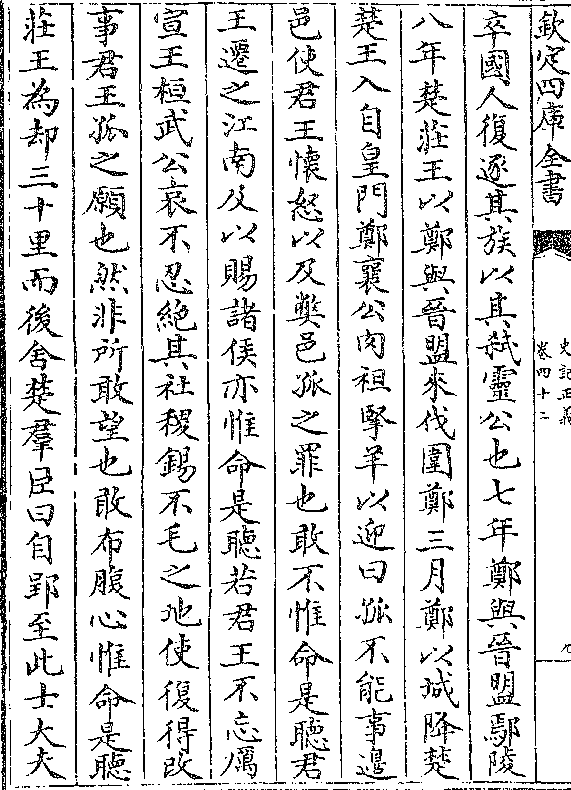 欽定四庫全書
史記正義
卷四十二
九
卒國人復逐其族以其弑靈公也七年鄭與晉盟鄢陵
八年楚莊王以鄭與晉盟來伐圍鄭三月鄭以城降楚
楚王入自皇門鄭襄公肉袒掔羊以迎曰孤不能事邊
邑使君王懷怒以及獘邑孤之罪也敢不惟命是聽君
王遷之江南及以賜諸侯亦惟命是聽若君王不忘厲
宣王桓武公哀不忍絶其社稷錫不毛之地使復得改
事君王孤之願也然非所敢望也敢布腹心惟命是聽
莊王為却三十里而後舍楚羣臣曰自郢至此士大夫